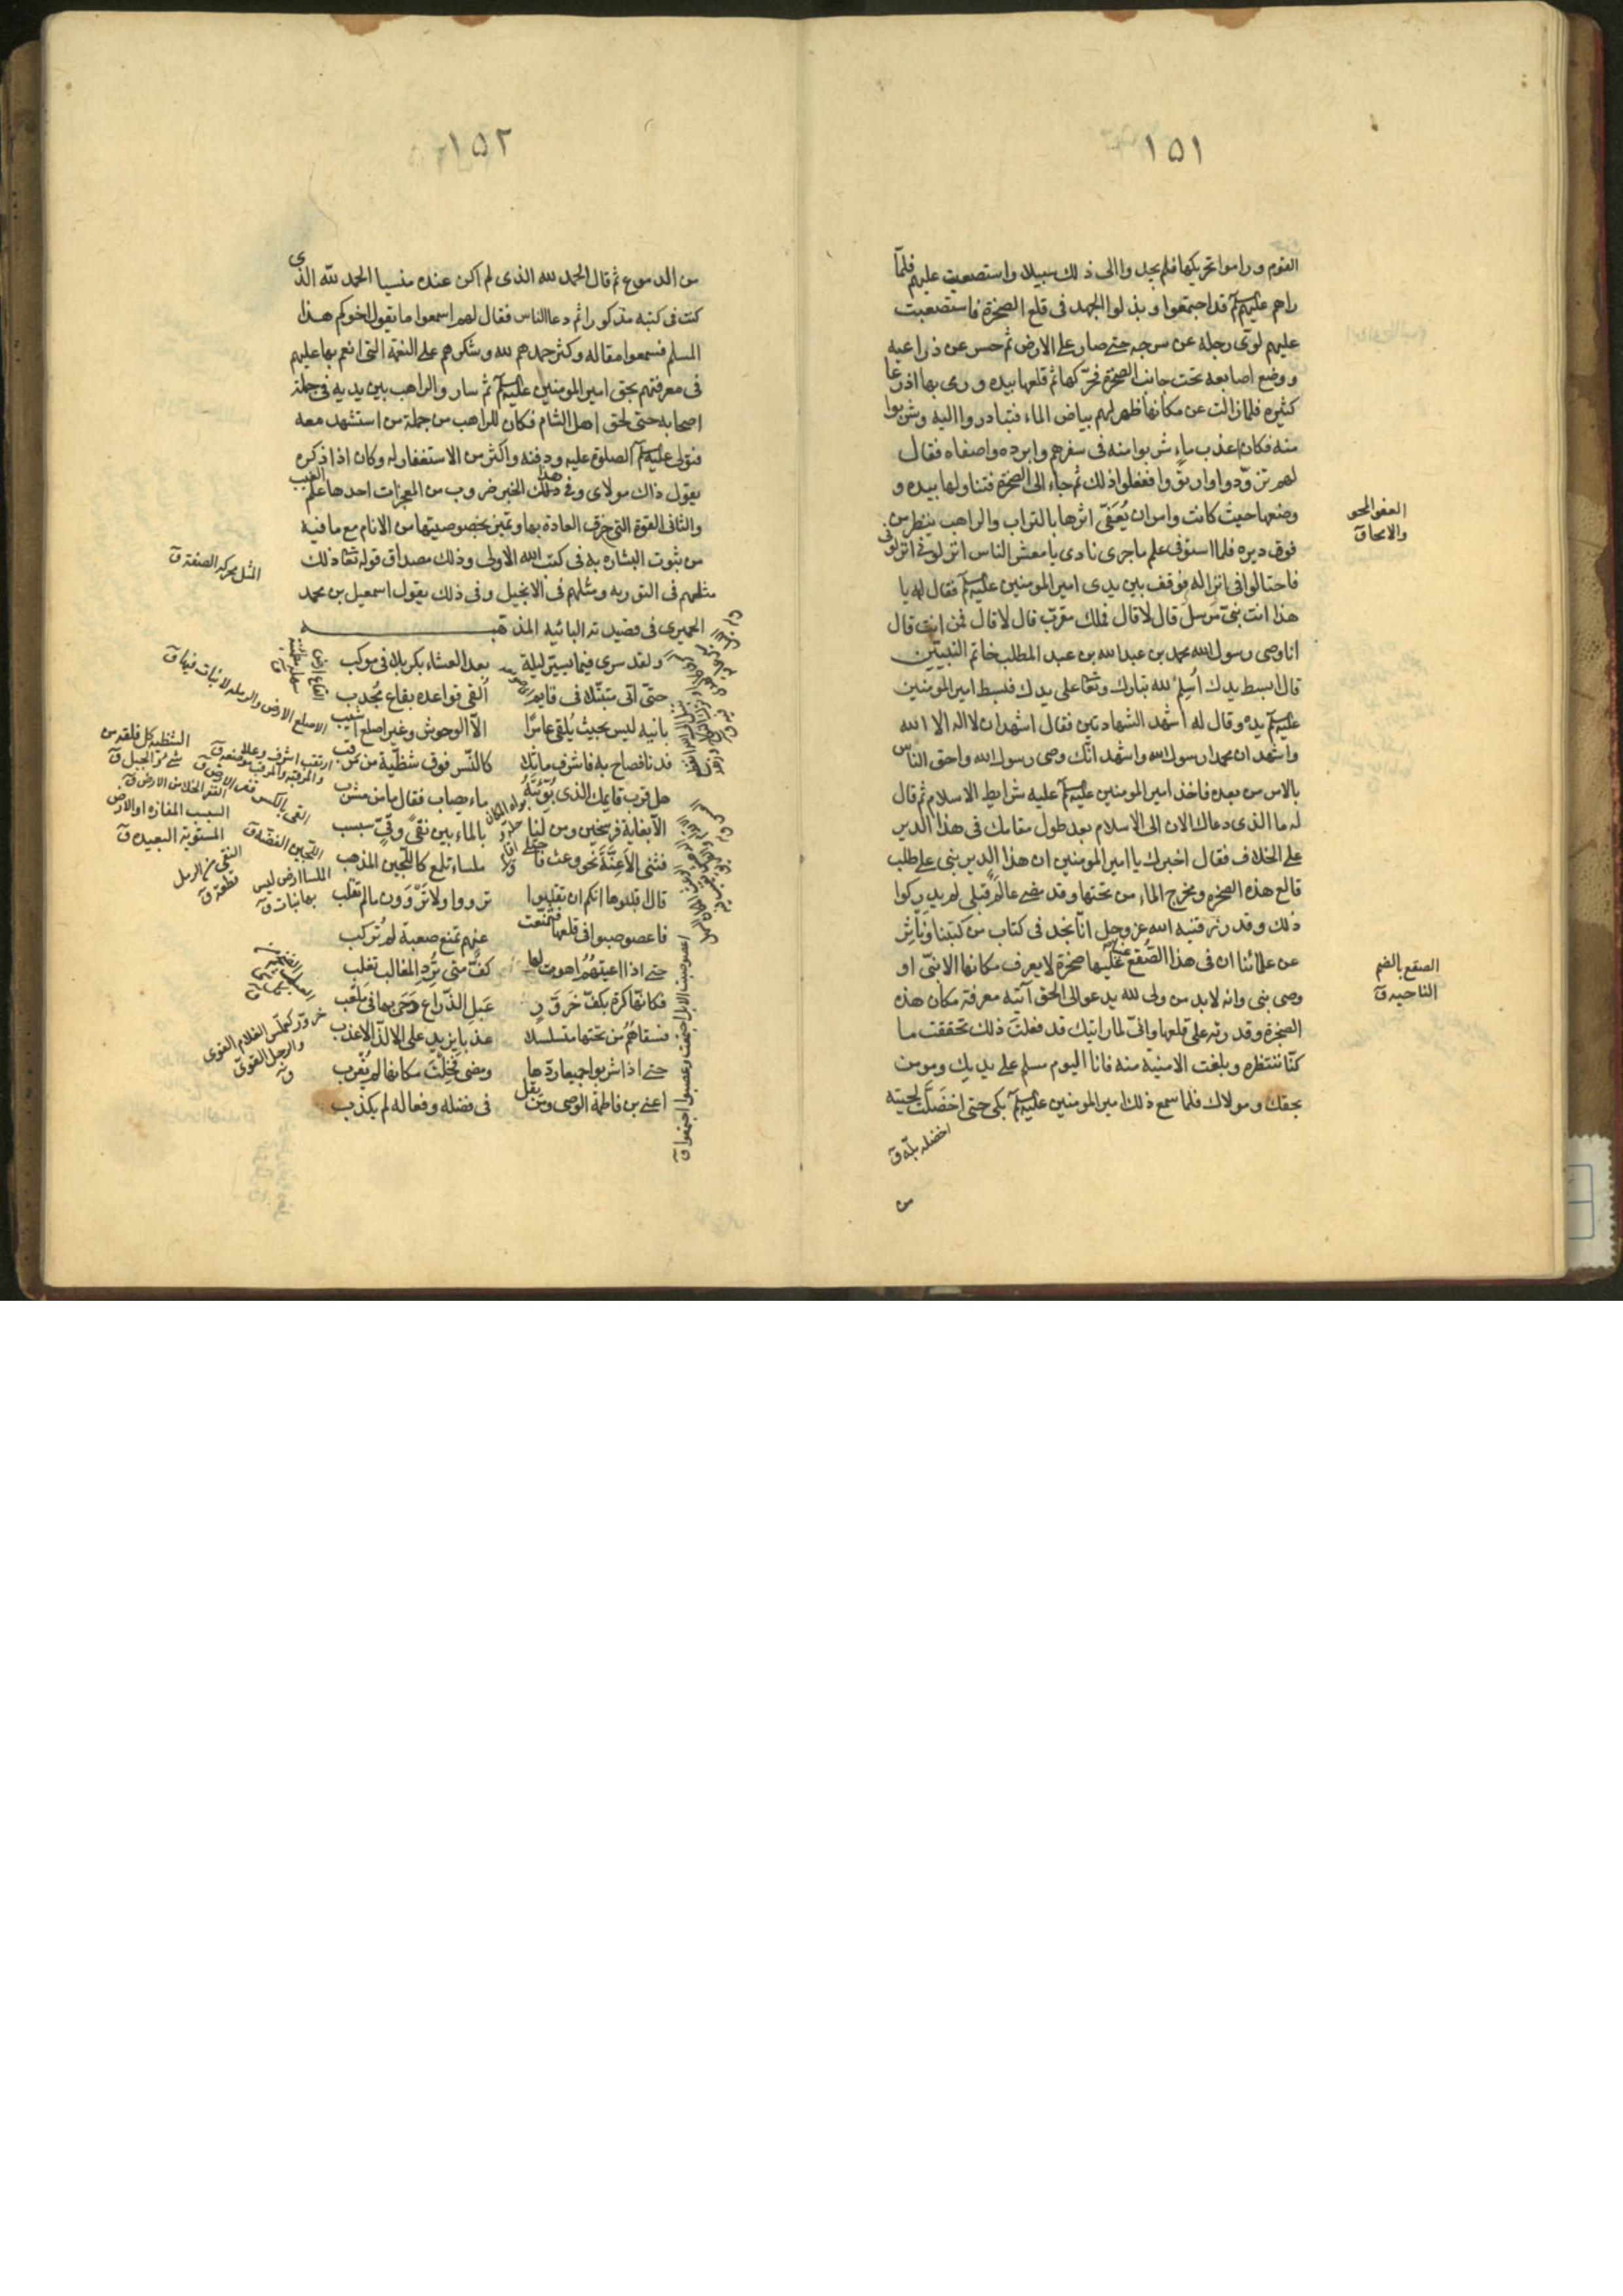 ١٥١
القوم وراموا تحريكها فلم يجدوا الى ذلك سبيلا واستصعبت عليهم فلمّا
راهم عليه السلم قد اجتمعوا وبذلوا الجهد فى قلع الصخرة فاستصعبت
عليهم لوى رجله عن سرجه حتى صار على الارض ثم حسر عن ذراعيه
ووضع اصابعه تحت جانب الصخرة فحرّكها ثم قلعها بيده ورمى بها اذرعا
كثيره فلما زالت عن مكانها ظهر لهم بياض الماء فتبادروا اليه وشربوا
منه فكان اعذب ماء شربوا منه فى سفرهم وابرده واصفاه فقال
لهم تزوّدوا وارتووا ففعلوا ذلك ثم جاء الى الصخرة فتناولها بيده و
وضعها حيث كانت وامر ان يُعَفّى اثرها بالتراب والراهب ينظر من
فوق ديره فلما استوفى علم ما جرى نادى يا معشر الناس انزلونى انزلونى
فاحتالوا فى انزاله فوقف بين يدى امير المومنين عليه السلم فقال له يا
هذا انت نبىّ مرسل قال لا قال فملك مقرّب قال لا قال فمن انت قال
انا وصى رسول الله محمد بن عبدالله بن عبد المطلب خاتم النبيّين
قال ابسط يدك اُسلِم لله تبارك وتعا على يدك فبسط امير المومنين
عليه السلم يده وقال له اشهد الشهادتين فقال اشهد ان لا اله الا الله
واشهد ان محمدا رسول الله واشهد انّك وصى رسول الله واحق الناس
بالامر من بعده فاخذ امير المومنين عليه السلم عليه شرايط الاسلام ثم قال
له ما الذى دعاك الان الى الاسلام بعد طول مقامك فى هذا الدير
على الخلاف فقال اخبرك يا امير المومنين ان هذا الدير بنى على طلب
قالع هذه الصخره ومخرج الماء من تحتها وقد مضى عالم قبلى لم يدركوا
ذلك وقد رزقنيه الله عز وجل انّا نجد فى كتاب من كتبنا وناثر
عن علمائنا ان فى هذا الصُقع عينا عليها صخرة لا يعرف مكانها الا نبىّ او
وصى نبى وانه لابد من ولى لله يدعو الى الحق آيته معرفة مكان هذه
الصخرة وقدرته على قلعها وانّى لما رايتك قد فعلت ذلك تحققت ما
كنّا ننتظره وبلغت الامنيّة منه فانا اليوم مسلم على يديك ومومن
بحقك ومولاك فلما سمع ذلك امير المومنين عليه السلم بكى حتى اخضلّت لحيته
اخضله بلّه ق
من
العفو المحو
والامحاق
الصقع بالضم
الناحيه ق
١٥٢
من الدموع ثم قال الحمد لله الذى لم اكن عنده منسيا الحمد لله الذى
كنت فى كتبه مذكورا ثم دعا الناس فقال لهم اسمعوا ما يقول اخوكم هذا
المسلم فسمعوا مقاله وكثر حمدهم لله وشكرهم على النعمة التى انعم بها عليهم
فى معرفتهم بحق امير المومنين عليه السلم ثم سار والراهب بين يديه فى جملة
اصحابه حتى لحق اهل الشام فكان الراهب من جملة من استشهد معه
فتولى عليه السلم الصلوة عليه ودفنه واكثر من الاستغفار له وكان اذا ذكره
يقول ذاك مولاى وفى هذا الخبر ضروب من المعجزات احدها علم الغيب
والثانى القوة التى خرق العادة بها وتميز بخصوصيتها من الانام مع ما فيه
من ثبوت البشارة به فى كتب الله الاولى وذلك مصداق قوله تعا ذلك
مثلهم فى التوريه ومثلهم فى الانجيل وفى ذلك يقول اسمعيل بن محمد
الحميرى فى قصيدته البائيه المذهبه
ولقد سرى فيما يسيّر ليلة بعد العشاء بكربلا فى موكب
حتّى اتى متبتّلا فى قايم القى قواعده بقاع مُجدب
بانيه ليس بحيث يُلقى عامرًا الّا الوحوش وغير اصلع اشيب
فدنا فصاح به فاشرف ماثلا كالنّسر فوق شظيّة من مرقب
هل قرب قايمك الذى بُوّئتَهُ ماء يصاب فقال ما من مشرب
الّا بغاية فرسخين ومن لنا بالماء بين نقىً وقىّ سبسب
فثنى الاعنّة نحو وعث فاجتلى ملساء تلمع كاللّجين المذهب
قال اقلبوها انكم ان تقلبوا ترووا ولا تروون ما لم تقلب
فاعصوصبوا فى قلعها فتمنّعت عنهم تمنع صعبة لم تُركب
حتى اذا اعيتهُمُ اهوت لها كفٌّ متى تُرد المغالب تغلب
فكانّها كرة بكفّ خزوّر عَبلِ الذّراع دَحَى بها فى مَلعب
فسقاهُم من تحتها متسلسلا عذبا يزيد على الالذّ الاعذب
حتى اذا شربوا جميعا ردّها ومضى فخِلْتَ مكانها لم يُقرب
اعنى بن فاطمة الوصى ومن يقل فى فضله وفعاله لم يكذب
المثل محركة الصفة ق
الاصلع الارض والرمله لا نبات فيها ق
الشظيه كل فلقه من
شئ و من الجبل ق
القى بالكسر قفر الارض ق
القفر الخلا من الارض ق
السبسب المفازه او الارض
المستوية البعيده ق
اللّجين الفضه ق
النقى من الرمل
قطعة ق
الملسا ارض ليس
بها نبات ق
اعصوصبت الابل اجتمعت وعصبوا اجتمعوا ق
خزور كعملّس الغلام القوى
والرجل القوىّ
ق